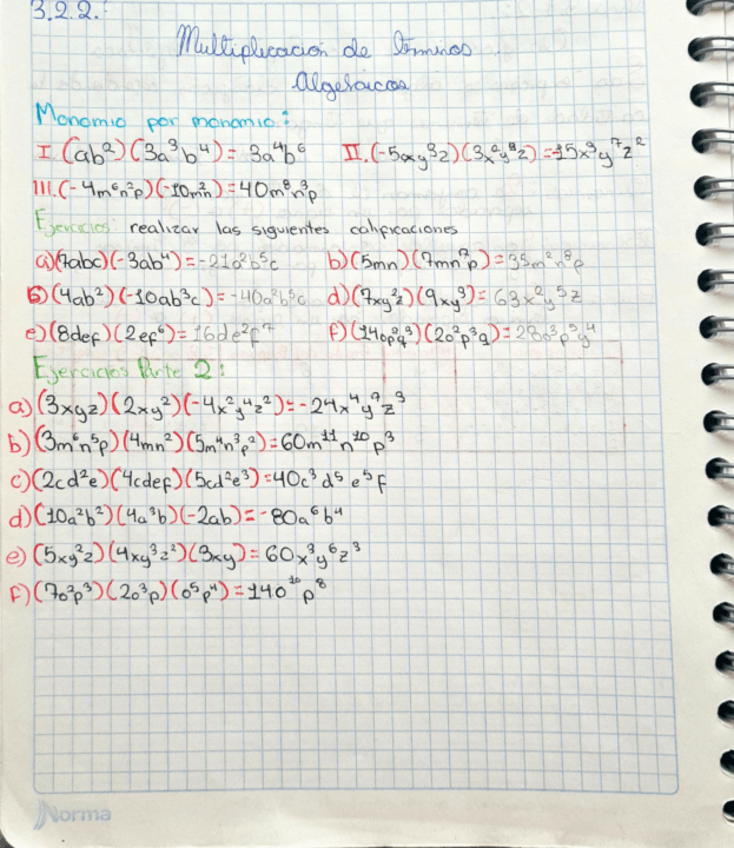 3.2.2.
Multiplicación de términos
Algebraicos
Monomio por monomio:
I. (ab²)(3a³b⁴) = 3a⁴b⁶ II. (-5xy³z)(3x²y⁴z) = -15x³y⁷z²
III. (-4m⁶n²p)(-10m²n) = 40m⁸n³p
Ejercicios realizar las siguientes calificaciones
a) (7abc)(-3ab⁴) = -21a²b⁵c b) (5mn)(7mn⁷p) = 35m²n⁸p
6) (4ab²)(-10ab³c) = -40a²b⁵c d) (7xy²z)(9xy³) = 63x²y⁵z
e) (8def)(2ef⁶) = 16de²f⁷ f) (14op²q³)(2o²p³q) = 28o³p⁵q⁴
Ejercicios Parte 2:
a) (3xyz)(2xy²)(-4x²y⁴z²) = -24x⁴y⁷z³
b) (3m⁶n⁵p)(4mn²)(5m⁴n³p²) = 60m¹¹n¹⁰p³
c) (2cd²e)(4cdef)(5cd²e³) = 40c³d⁵e⁵f
d) (10a²b²)(4a³b)(-2ab) = -80a⁶b⁴
e) (5xy²z)(4xy³z²)(3xy) = 60x³y⁶z³
f) (7o²p³)(2o³p)(o⁵p⁴) = 14o¹⁰p⁸
Norma